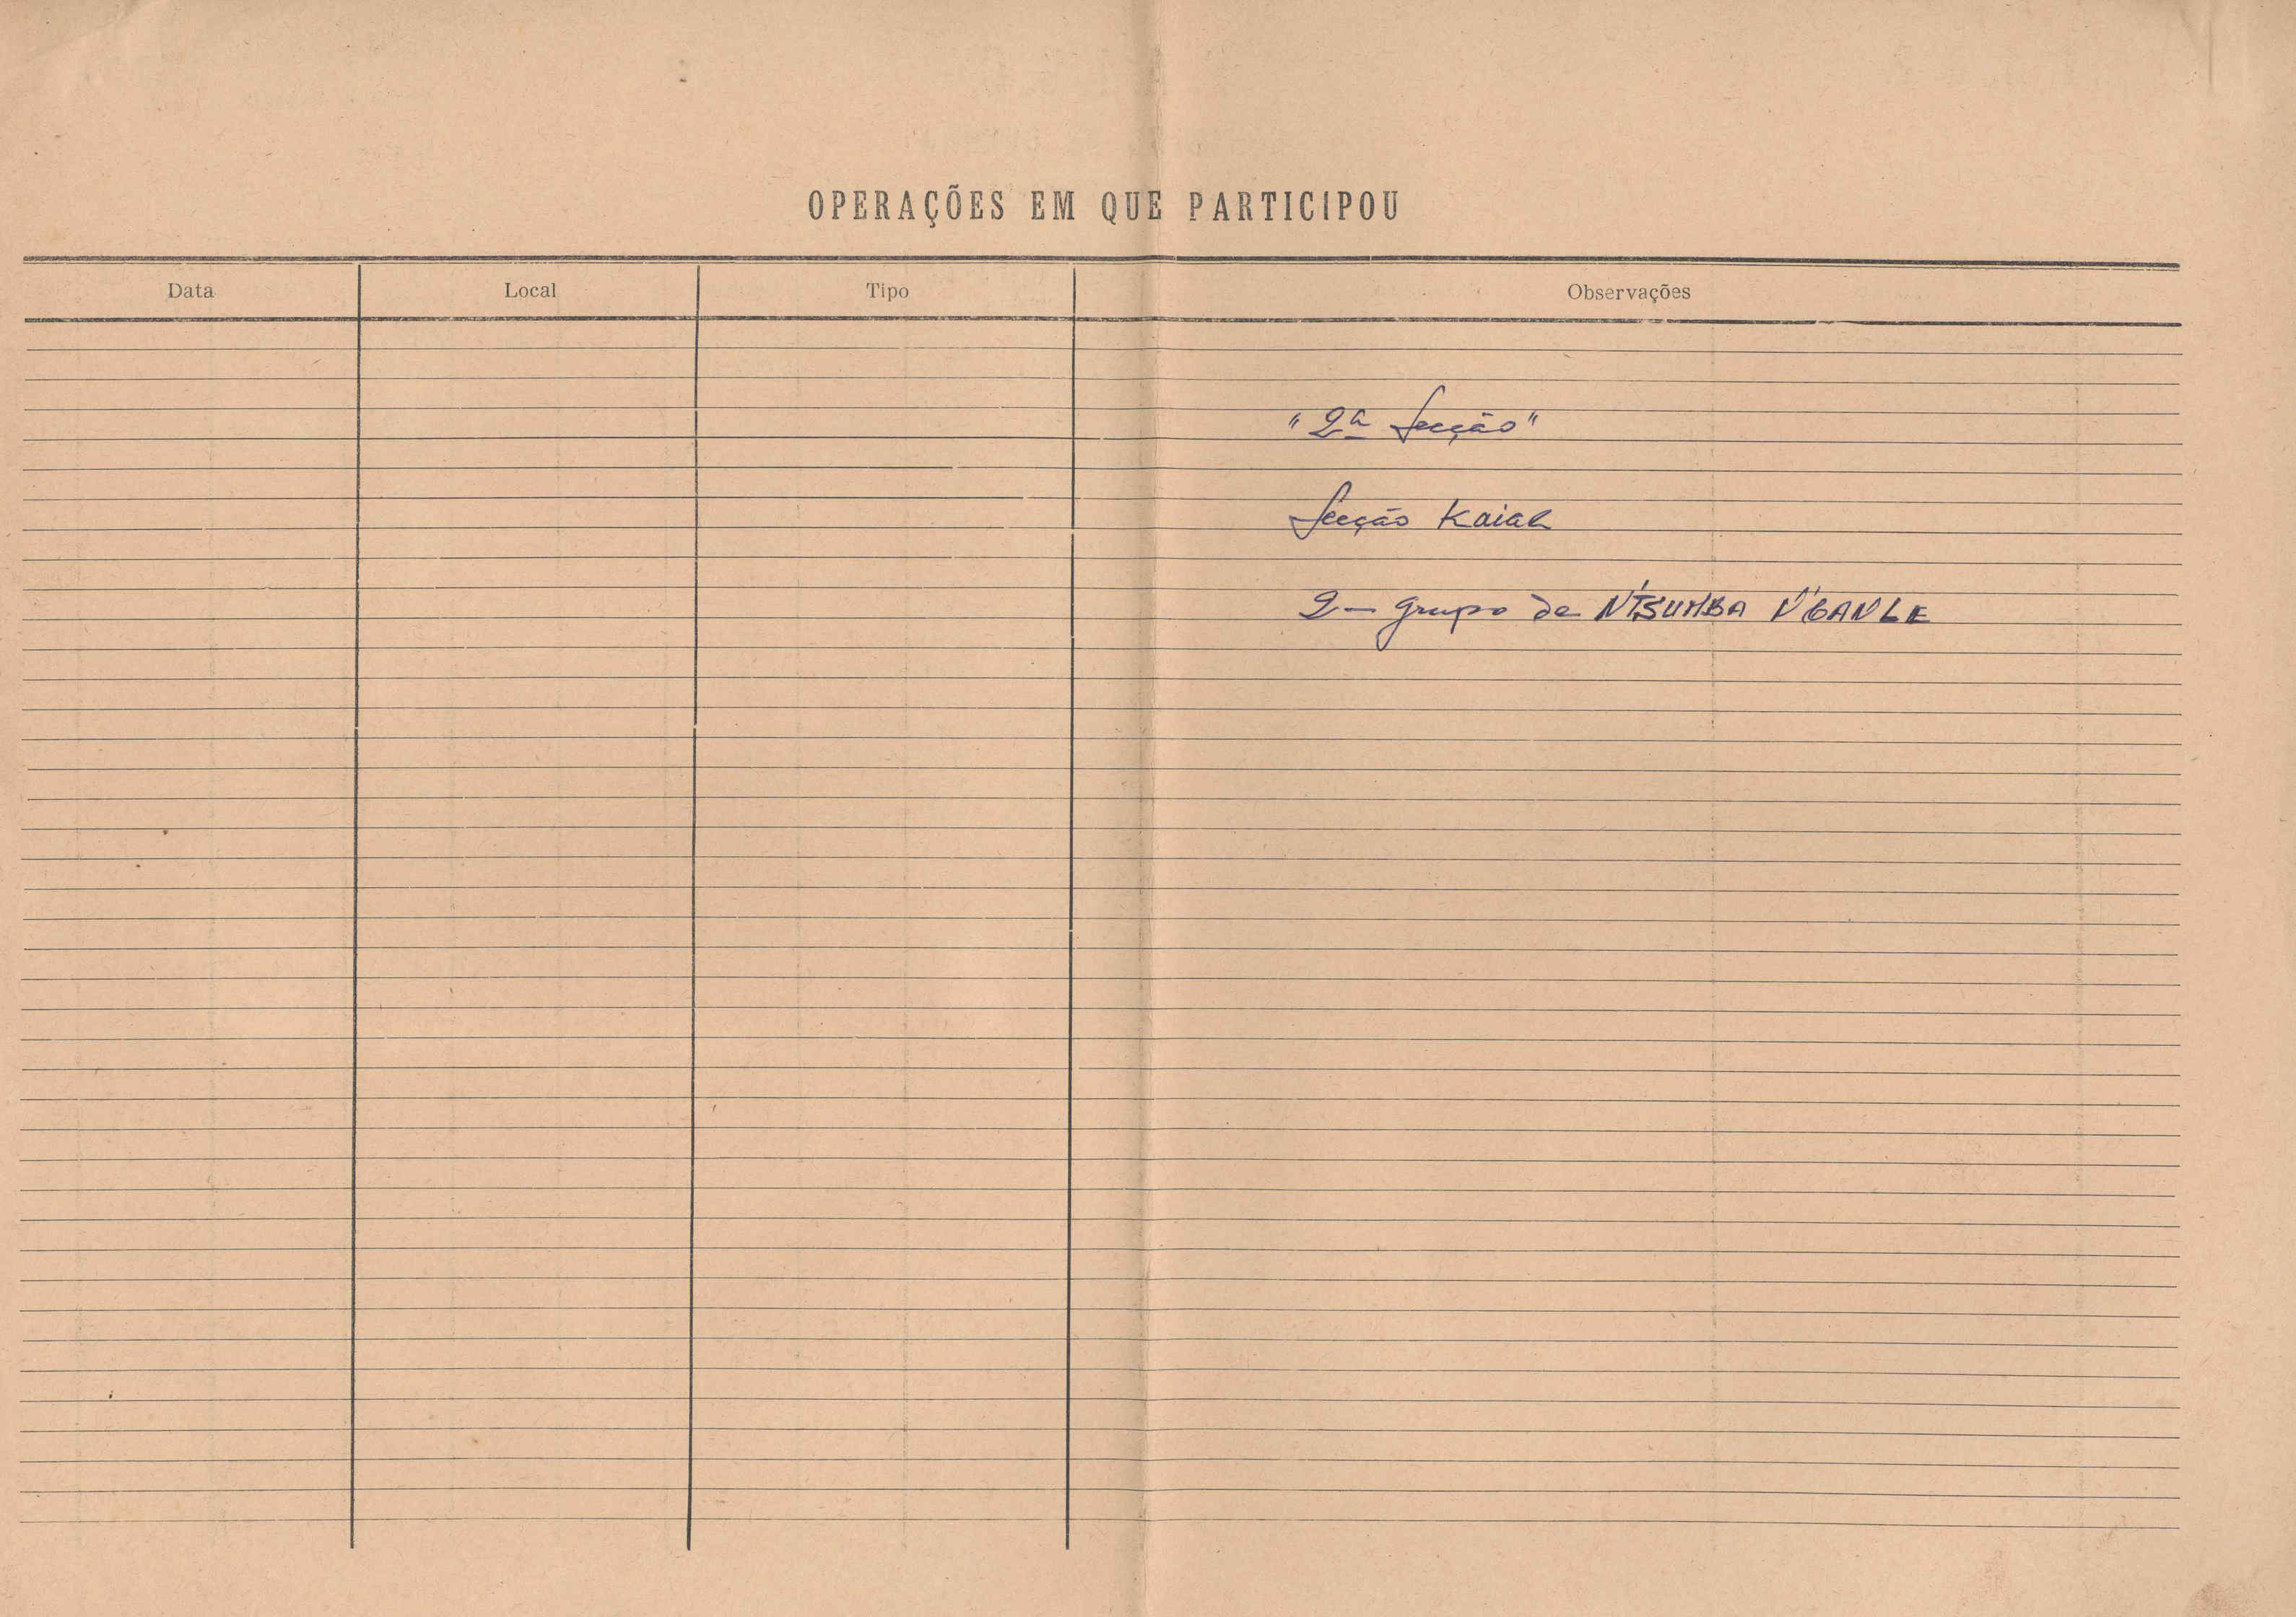 OPERAÇÕES EM QUE PARTICIPOU
Data Local Tipo Observações
"2ª Secção"
Secção Kaiah
2 - grupo de N'TSUMBA N'GANLE